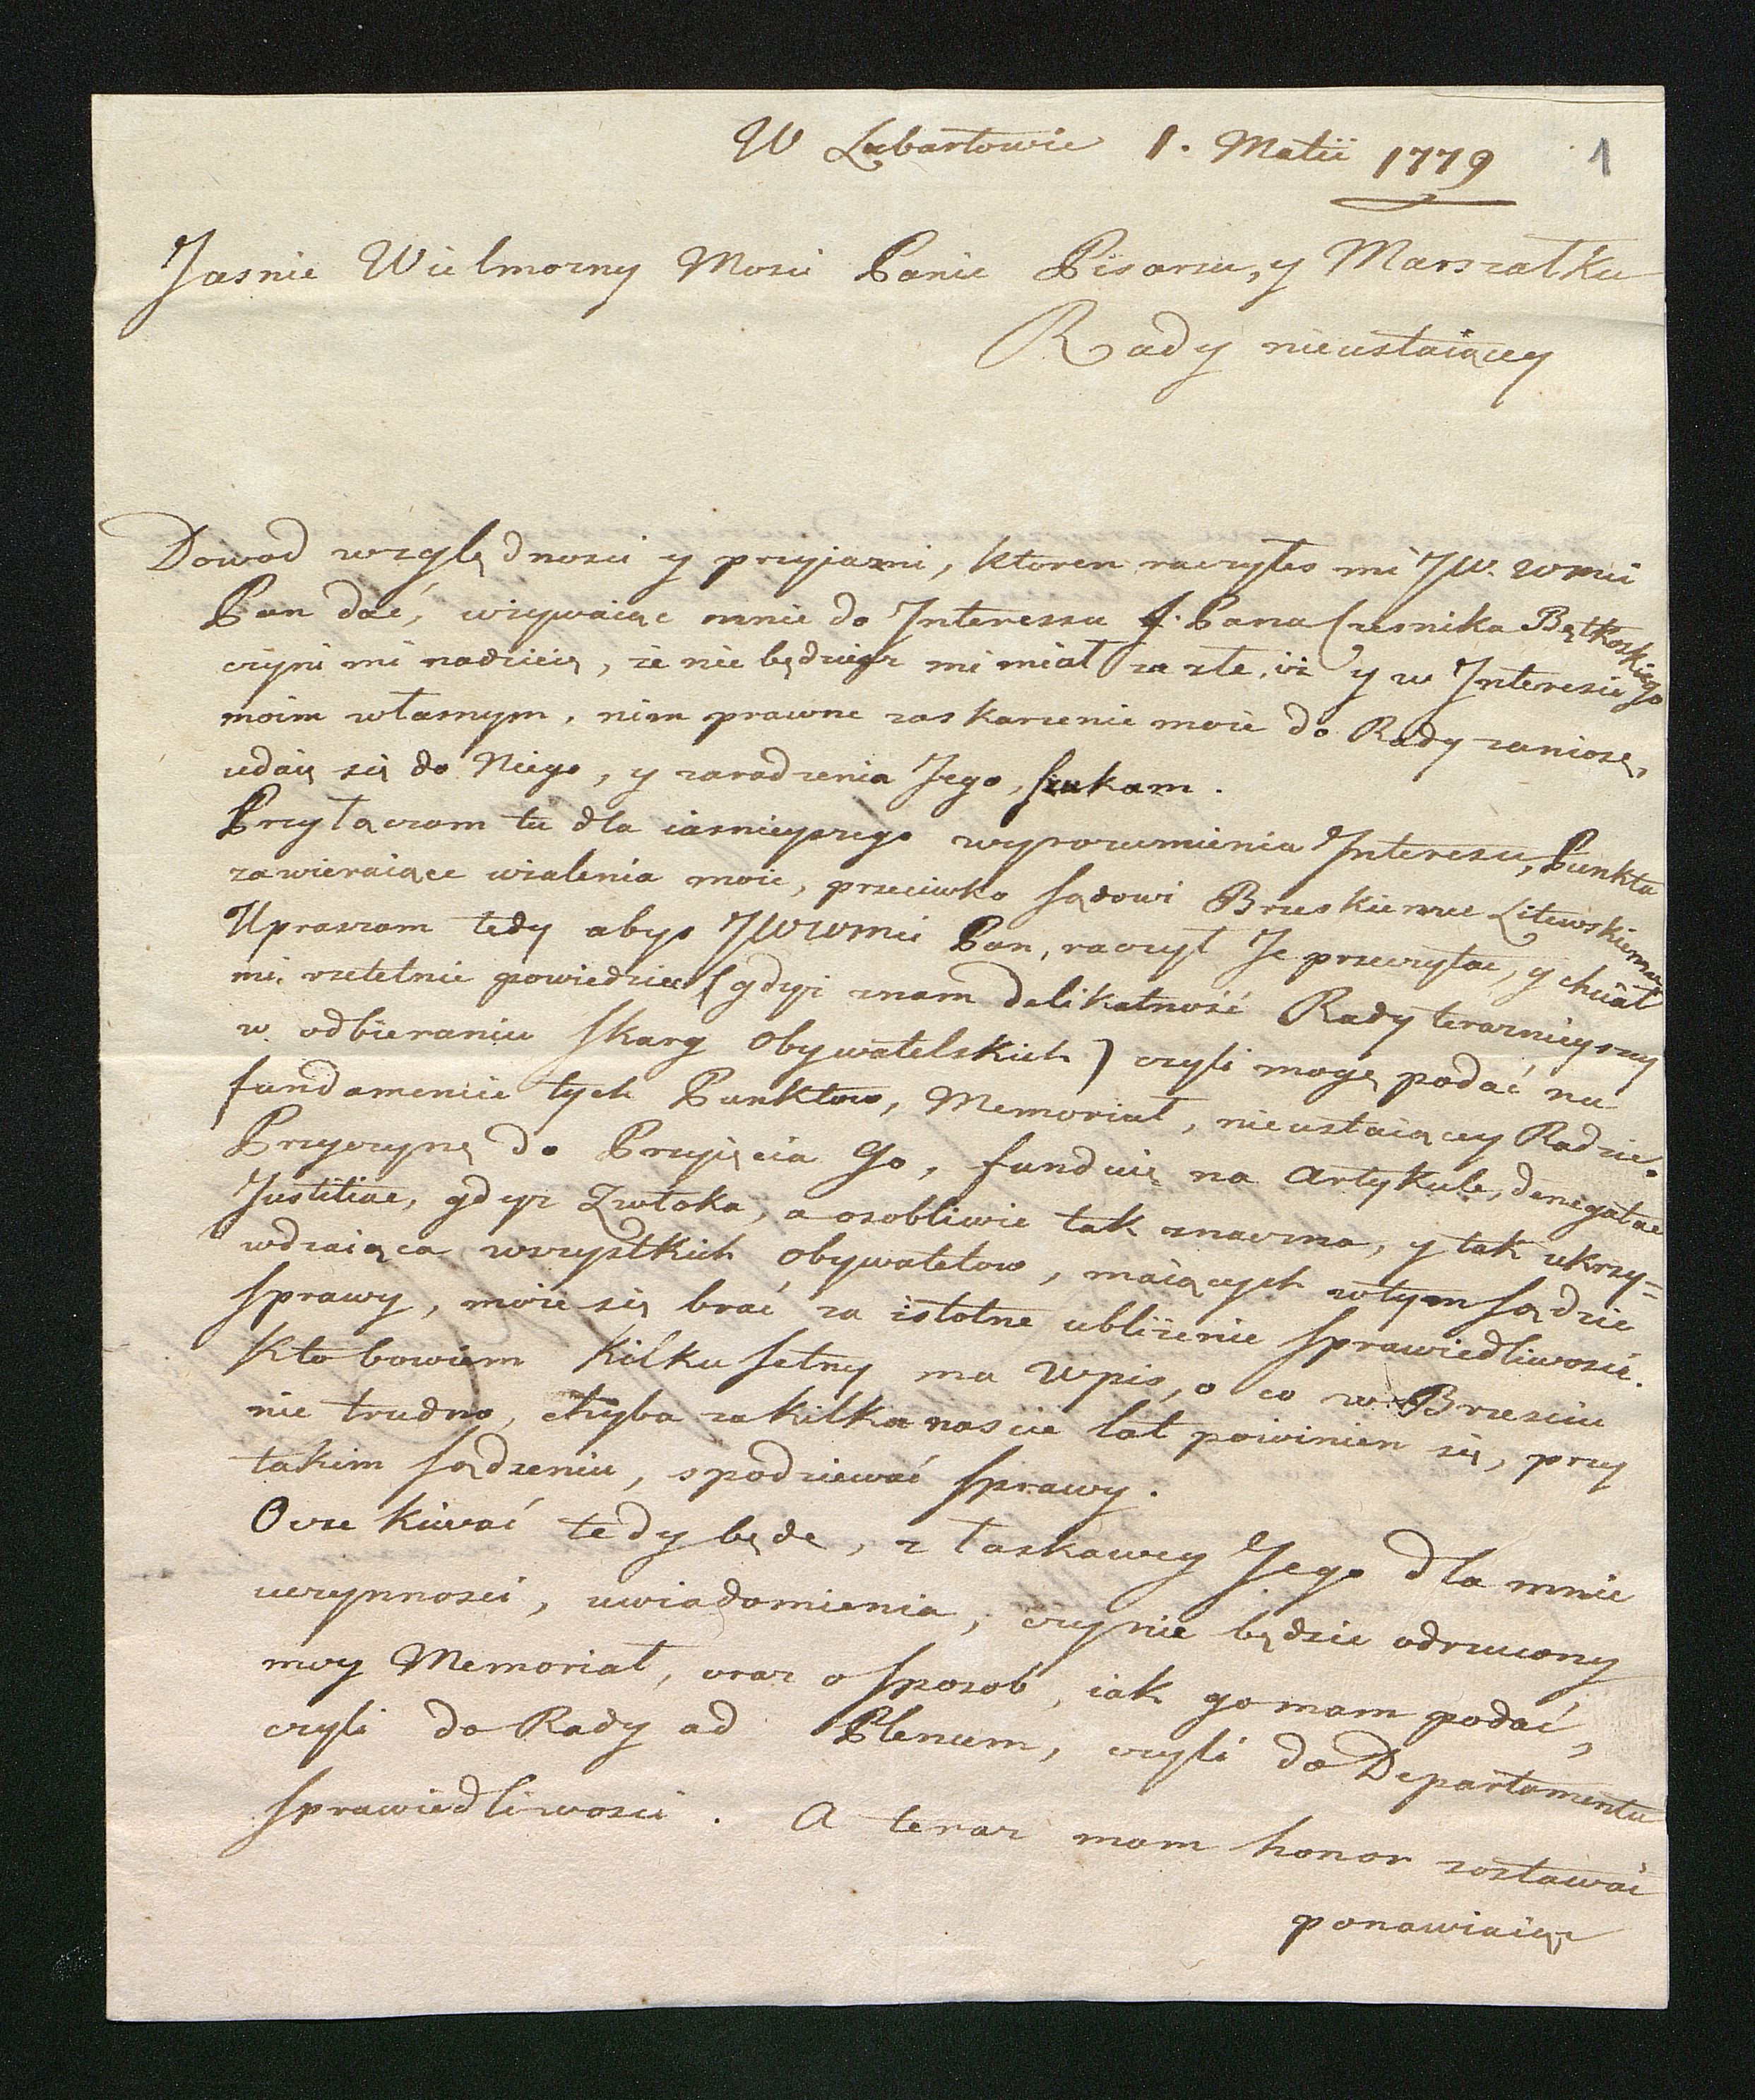 W Lubartowie 1. Maii 1779 1
Jasnie Wielmozny Mosci Panie Pisarzu, y Marszałku
Rady nieustaiącey
Dowod względnosci y przyjazni, ktoren raczyłes mi JW. WMci
Pan dać, wzywaiąc mnie do Interessu J. Pana Czesnika Bątkoskiego
czyni mi nadzieię, że nie będziesz mi miał za złe, iż y w Interesie
moim własnym, nim prawne zaskarzenie moie do Rady zaniosę,
udaię się do Niego, y zaradzenia Jego, szukam.
Przyłączam tu dla iasnieyszego wyrozumienia Interesu, Punkta
zawieraiące wialenia moie, przeciwko sądowi Brzeskiemu Litewskiemu
Upraszam tedy abys JWWMci Pan, raczył Je przeczytac, y chciał
mi rzetelnie powiedziec (gdyż znam delikatność Rady teraznieyszey
w odbieraniu skarg Obywatelskich) czyli mogę podać na
fundamencie tych Punktow, Memoriał, nieustaiącey Radzie.
Przyczynę do Przyjęcia Go, funduię na Artykule, denegatae
Justitiae, gdyż Zwłoka, a osobliwie tak znaczna, y tak ukrzy=
wdzaiąca wszystkich Obywatelow, maiących w tym sądzie
sprawy, może się brać za istotne ubliżenie sprawiedliwosci.
Kto bowiem kilkusetny ma Wpis, o co w Brzesciu
nie trudno, chyba za kilkanascie lat powinien się, przy
takim sądzeniu, spodziewać sprawy.
Oczekiwać tedy będę, z łaskawey Jego dla mnie
uczynnosci, uwiadomienia, czy nie będzie odrzucony
moy Memoriał, oraz o sposob, iak go mam podać,
czyli do Rady ad Plenum, czyli do Departamentu
sprawiedliwosci. A teraz mam honor zostawać
ponawiaiąc